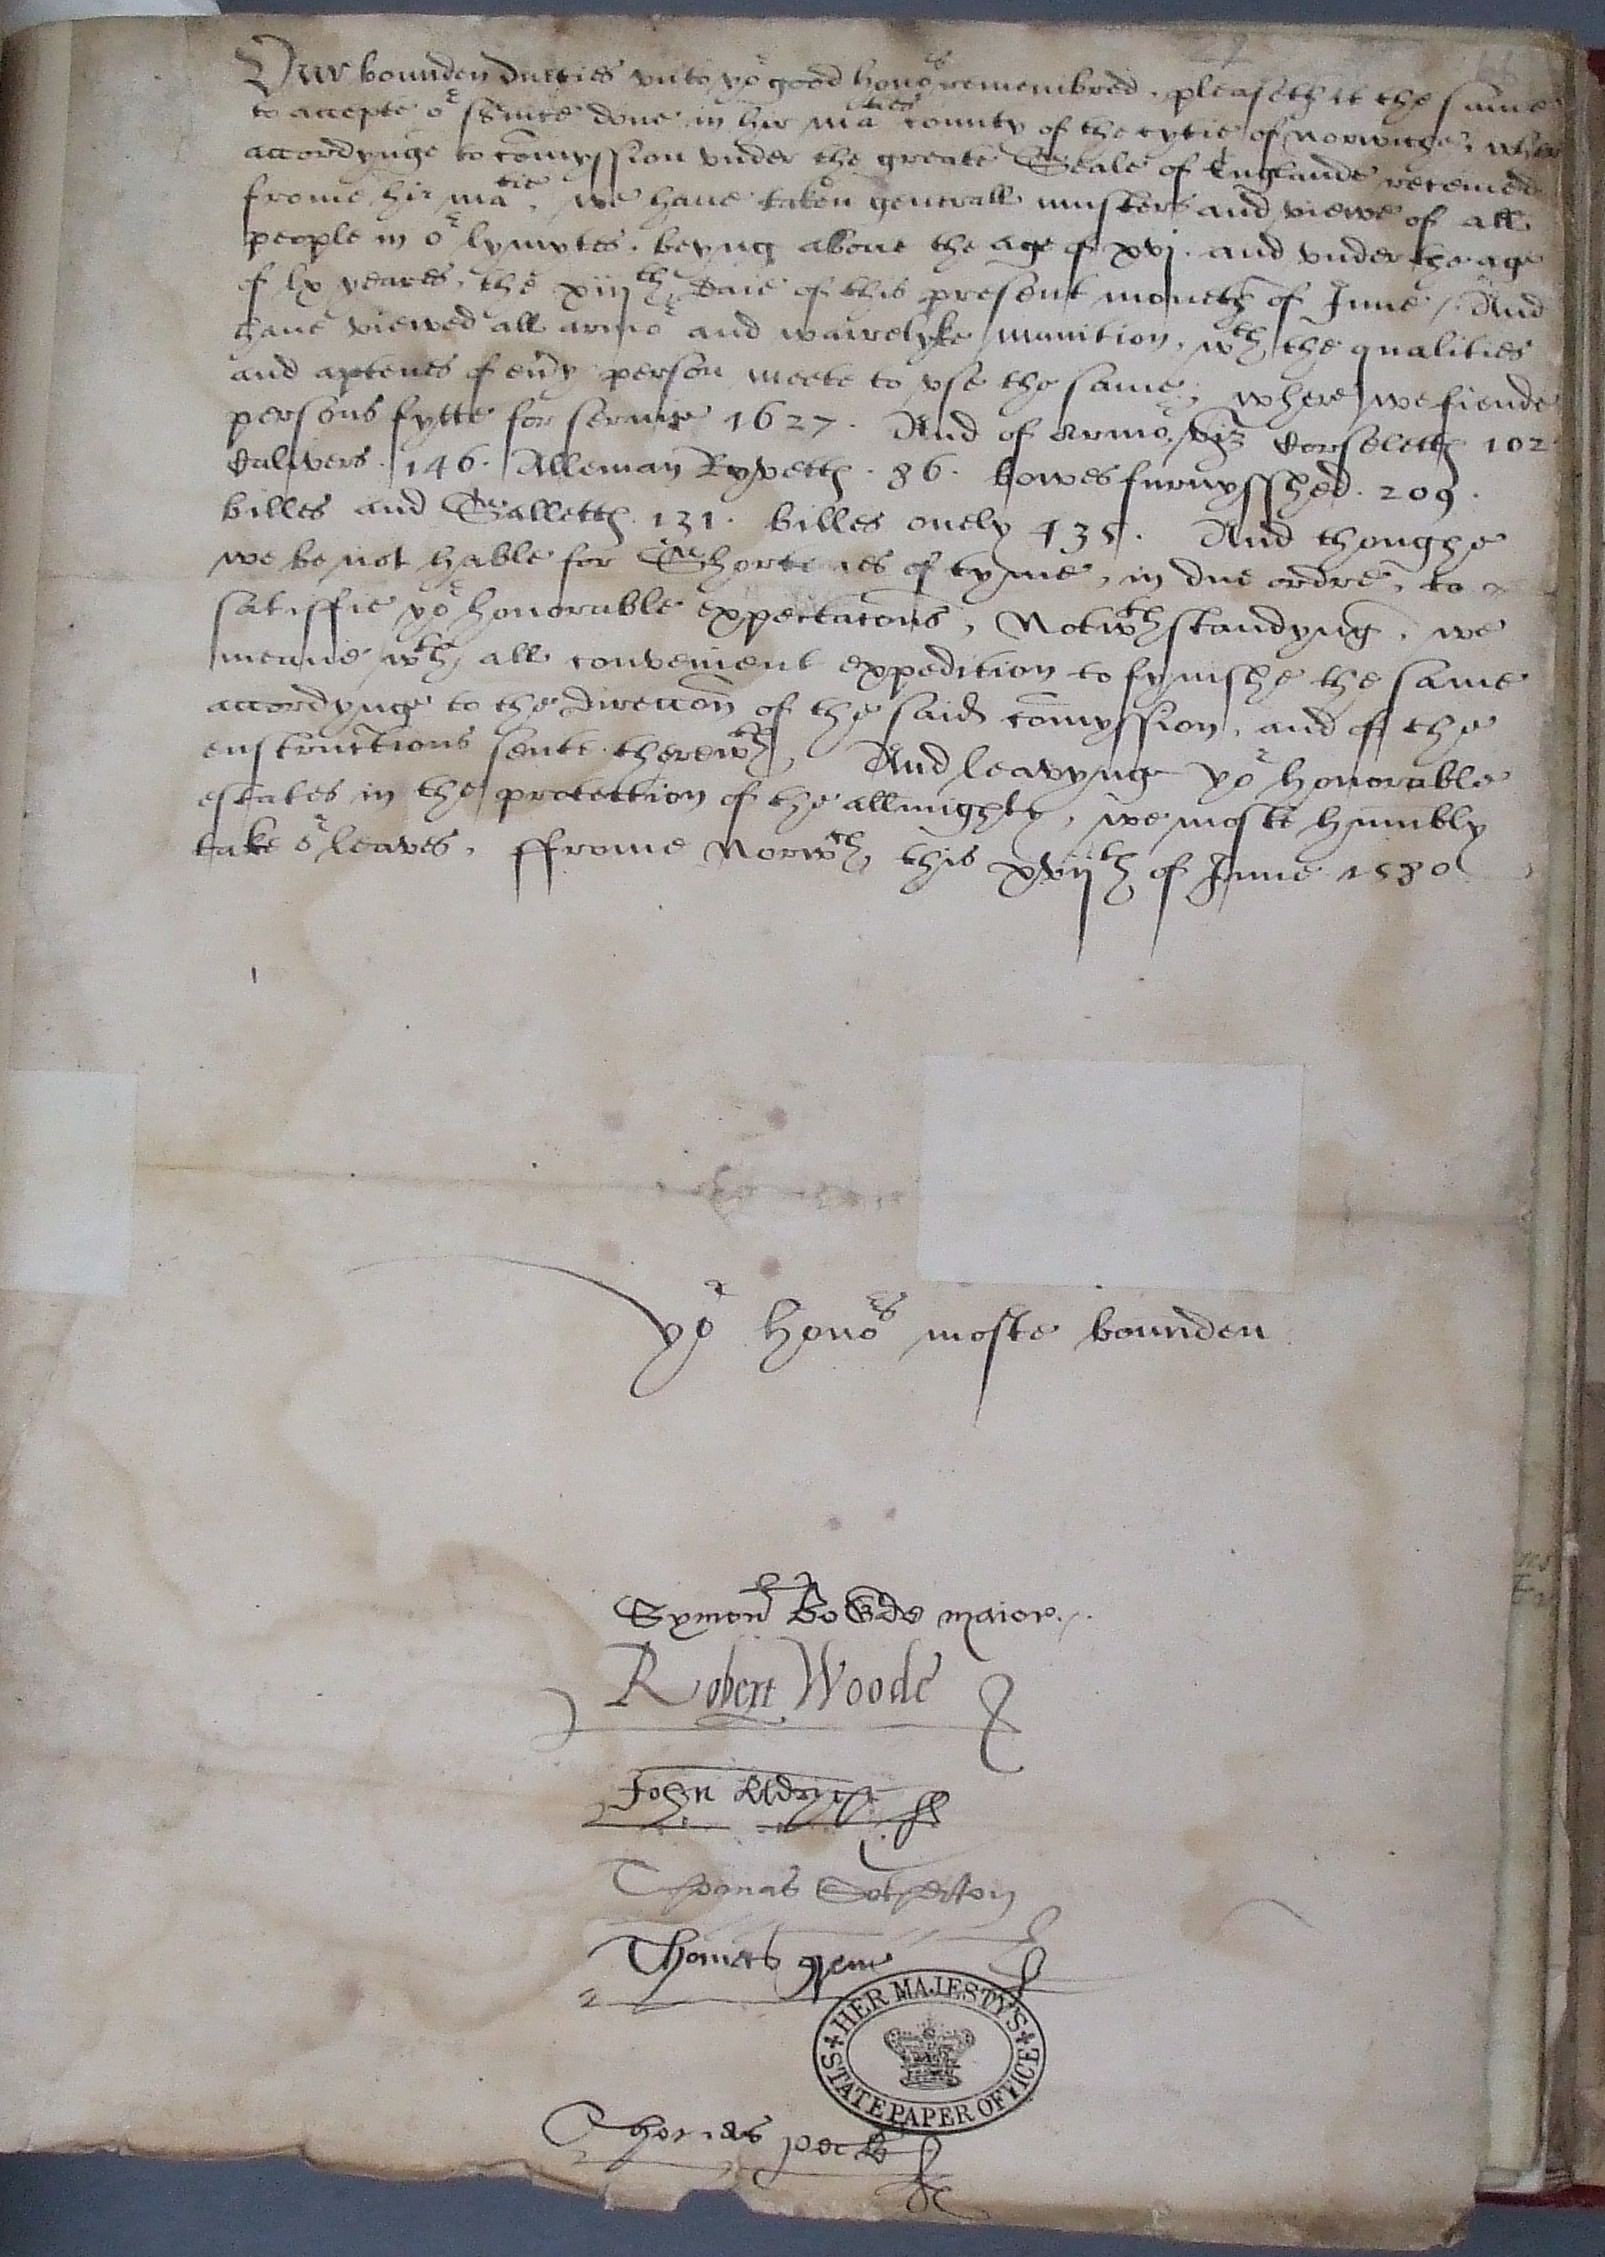 Our bounden dueties vnto yor good honors remembred, pleaseth it the same
to accepte or s̃uice done in hir maties county of the cytie of Norwiche, wher
accordynge to com̃yssion vnder the greate Seale of Englande receiued
frome hir matie, we haue taken generall musters and viewe of all
people in or lymytes, beyng aboue the age of xvj. and vnder the age
of lx yeares, the xiijth daie of this present moneth of June /. And
haue viewed all armor and warrelyke munition, wth the qualities
and aptenes of eũy person meete to vse the same; where we fiende
persons fytte for seruice 1627. And of Armor, viz Corseletts 102
Calivers. 146. Alleman Ryvetts. 86. bowes furnysshed. 209.
billes and Salletts. 131. billes onely 435. And thoughe
we be not hable for Shortenes of tyme, in due ordre, to
satisffie yor honorable expectacons, Notwthstandyng, we
meane wth all convenient expedition to fynishe the same
accordynge to the direccon of the said com̃yssion, and of the
enstructions sente therewth, And leavyng yor honorable
estates in the protection of the allmighty, we moste humbly
take or leaves, ffrome Norwch, this xvijth of June 1580
yor honors moste bounden
Symon Bowde maior.
Robert Woode
John Aldryche
Thomas Sotherton
Thomas
HER MAJESTY'S
STATE PAPER OFFICE
Thomas peck